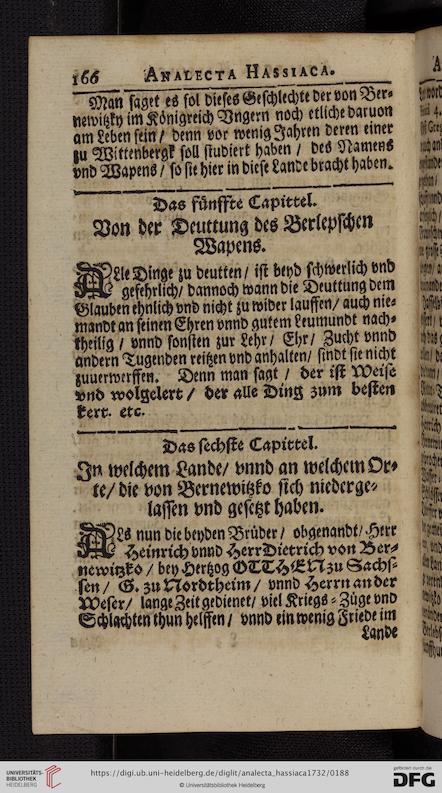 166 ANALECTA HASSIACA.
Man saget es sol dieses Geschlechte der von Ber-
newitzky im Königreich Vngern noch etliche daruon
am Leben sein / denn vor wenig Jahren deren einer
zu Wittenbergk soll studiert haben / des Namens
vnd Wapens / so sie hier in diese Lande bracht haben.
Das fünffte Capittel.
Von der Deuttung des Berlepschen
Wapens.
ALle Dinge zu deutten / ist beyd schwerlich vnd
gefehrlich / dannoch wann die Deuttung dem
Glauben ehnlich vnd nicht zu wider lauffen / auch nie-
mandt an seinen Ehren vnnd gutem Leumundt nach-
theilig / vnnd sonsten zur Lehr / Ehr / Zucht vnnd
andern Tugenden reitzen vnd anhalten / sindt sie nicht
zuuerwerffen. Denn man sagt / der ist Weise
vnd wolgelert / der alle Ding zum besten
kert. etc.
Das sechste Capittel.
Jn welchem Lande / vnnd an welchem Or-
te / die von Bernewitzko sich niederge-
lassen vnd gesetzt haben.
ALs nun die beyden Brüder / obgenandt / Herr
Heinrich vnnd Herr Dietrich von Ber-
newitzko / bey Hertzog OTTHEN zu Sachs-
sen / G. zu Nordtheim / vnnd Herrn an der
Weser / lange Zeit gedienet / viel Kriegs-Züge vnd
Schlachten thun helffen / vnnd ein wenig Friede im
Lande
UNIVERSITÄTS-
BIBLIOTHEK
HEIDELBERG
https://digi.ub.uni-heidelberg.de/diglit/analecta_hassiaca1732/0188
© Universitätsbibliothek Heidelberg
gefördert durch die
DFG